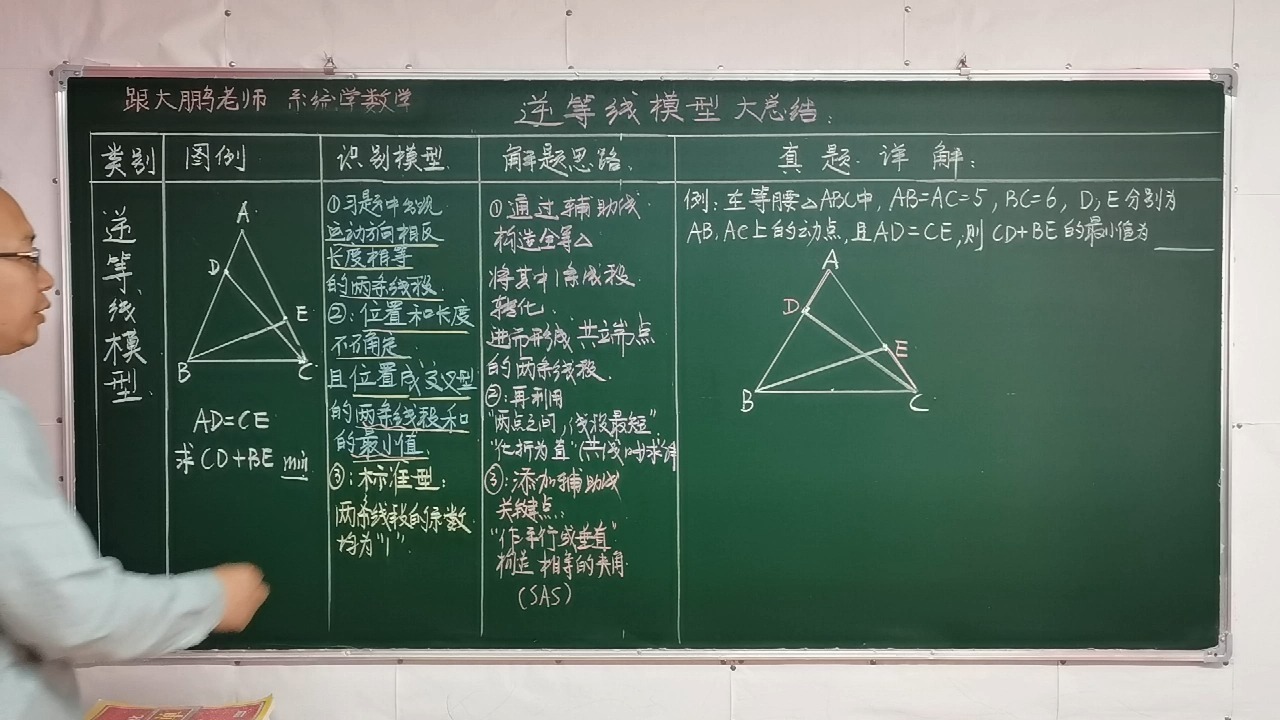 跟大鹏老师 系统学数学
逆等线模型 大总结.
类别
图例
识别模型.
解题思路.
真题.详解:
逆等线模型.
A
D
E
B
C
AD=CE
求CD+BE min
①习题中出现
运动方向相反
长度相等
的两条线段.
②:位置和长度
不确定
且位置成交叉型
的两条线段和
的最小值.
③:标准型:
两条线段的系数
均为"1".
①通过辅助线
构造全等△
将其中1条线段.
转化.
进而形成 共端点
的两条线段.
②:再利用
"两点之间,线段最短"
"化折为直"(共线时)求解
③:添加辅助线
关键点.
"作平行或垂直"
构造 相等的夹角.
(SAS)
例:在等腰△ABC中, AB=AC=5, BC=6, D,E分别为
AB,AC上的动点,且AD=CE,则 CD+BE的最小值为
A
D
E
B
C